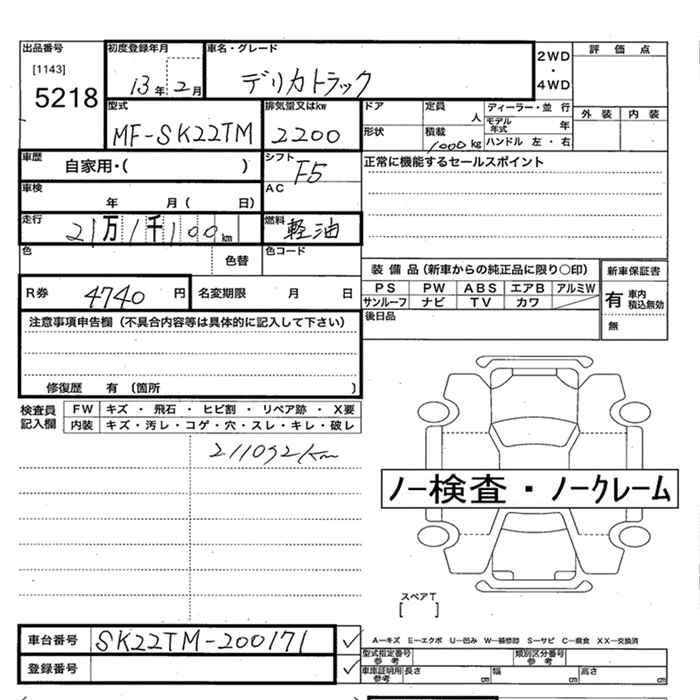 出品番号 初度登録年月 車名・グレード 2WD ・ 4WD 評価点
[1143]
5218 13年2月 デリカトラック
型式 排気量又はkw ドア 定員 人 ディーラー・並行 外装 内装
MF-SK22TM 2200 形状 積載 1000kg モデル年式 年
ハンドル 左・右
車歴 自家用・( ) シフト F5 正常に機能するセールスポイント
車検 年 月( 日) AC
走行 21万1千100km 燃料 軽油
色 色替 色コード
装備品(新車からの純正品に限り○印) 新車保証書
R券 4740円 名変期限 月 日 PS PW ABS エアB アルミW 有 車内積込無効
サンルーフ ナビ TV カワ
注意事項申告欄(不具合内容等は具体的に記入して下さい) 後日品 無
修復歴 有(箇所 )
検査員記入欄 FW キズ・飛石・ヒビ割・リペア跡・X要
内装 キズ・汚レ・コゲ・穴・スレ・キレ・破レ
211092km
ノー検査・ノークレーム
スペアT
[ ]
車台番号 SK22TM-200171 ✓ A−キズ E−エクボ U−凹み W−補修跡 S−サビ C−腐食 XX−交換済
型式指定番号 参考 類別区分番号 参考
登録番号 ✓ 車庫証明用 参考 長さ cm 幅 cm 高さ cm